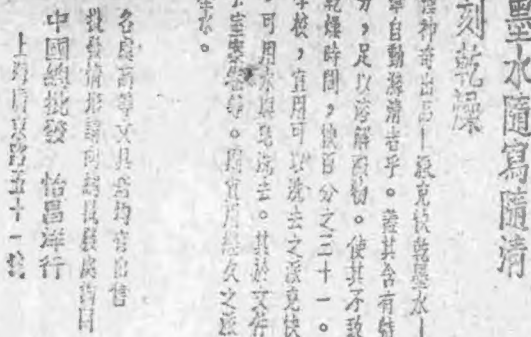 墨水隨寫隨清
刻乾燥
神奇出品—派克快乾墨水—
自動濂清者乎。蓋其含有特
分,足以溶解雜物。使其不致
乾燥時間,快百分之三十一。
學校,宜用可以洗去之派克快
可用水與皂洗去。其於文件
室案 等。則宜用經久之派
水。
各處高等文具店均有出售
批發情形請向總批發處詢問
中國總批發 怡昌洋行
上海 東路五十一號